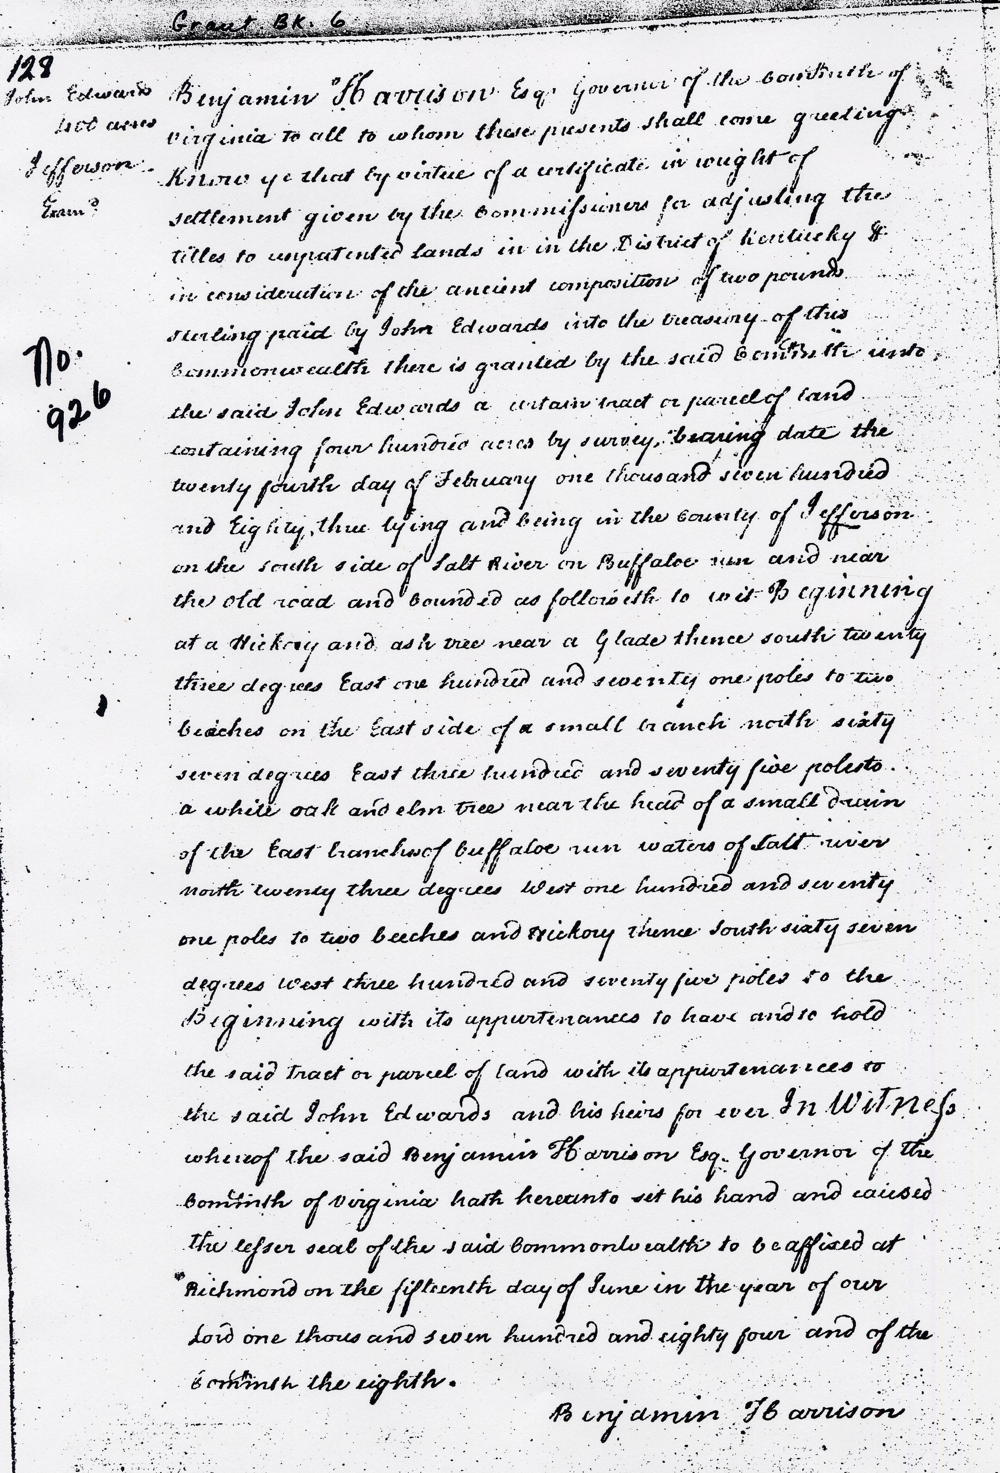 Grant Bk. 6
128
John Edwards
400 acres
Jefferson
Exam.d
No.
926
Benjamin Harrison Esq. Governor of the Comthth of
Virginia to all to whom these presents shall come greeting
Know ye that by virtue of a certificate in wright of
settlement given by the Commissioners for adjusting the
titles to unpatented lands in in the District of Kentucky &
in consideration of the ancient composition of two pounds
sterling paid by John Edwards into the treasury of this
Commonwealth there is granted by the said Comth unto
the said John Edwards a certain tract or parcel of land
containing four hundred acres by survey, bearing date the
twenty fourth day of February one thousand seven hundred
and Eighty, three lying and being in the County of Jefferson
on the south side of Salt River on Buffaloe run and near
the old road and bounded as followeth to wit Beginning
at a Hickory and ash tree near a Glade thence south twenty
three degrees East one hundred and seventy one poles to two
beaches on the East side of a small branch north sixty
seven degrees East three hundred and seventy five poles to
a white oak and elm tree near the head of a small drain
of the East branches of buffaloe run waters of Salt river
north twenty three degrees West one hundred and seventy
one poles to two beeches and Hickory thence South sixty seven
degrees West three hundred and seventy five poles to the
Beginning with its appurtenances to have and to hold
the said tract or parcel of land with its appurtenances to
the said John Edwards and his heirs for ever In Witness
whereof the said Benjamin Harrison Esq. Governor of the
Comth of Virginia hath hereunto set his hand and caused
the lesser seal of the said Commonwealth to be affixed at
Richmond on the fifteenth day of June in the year of our
Lord one thousand seven hundred and eighty four and of the
Comth the eighth.
Benjamin Harrison